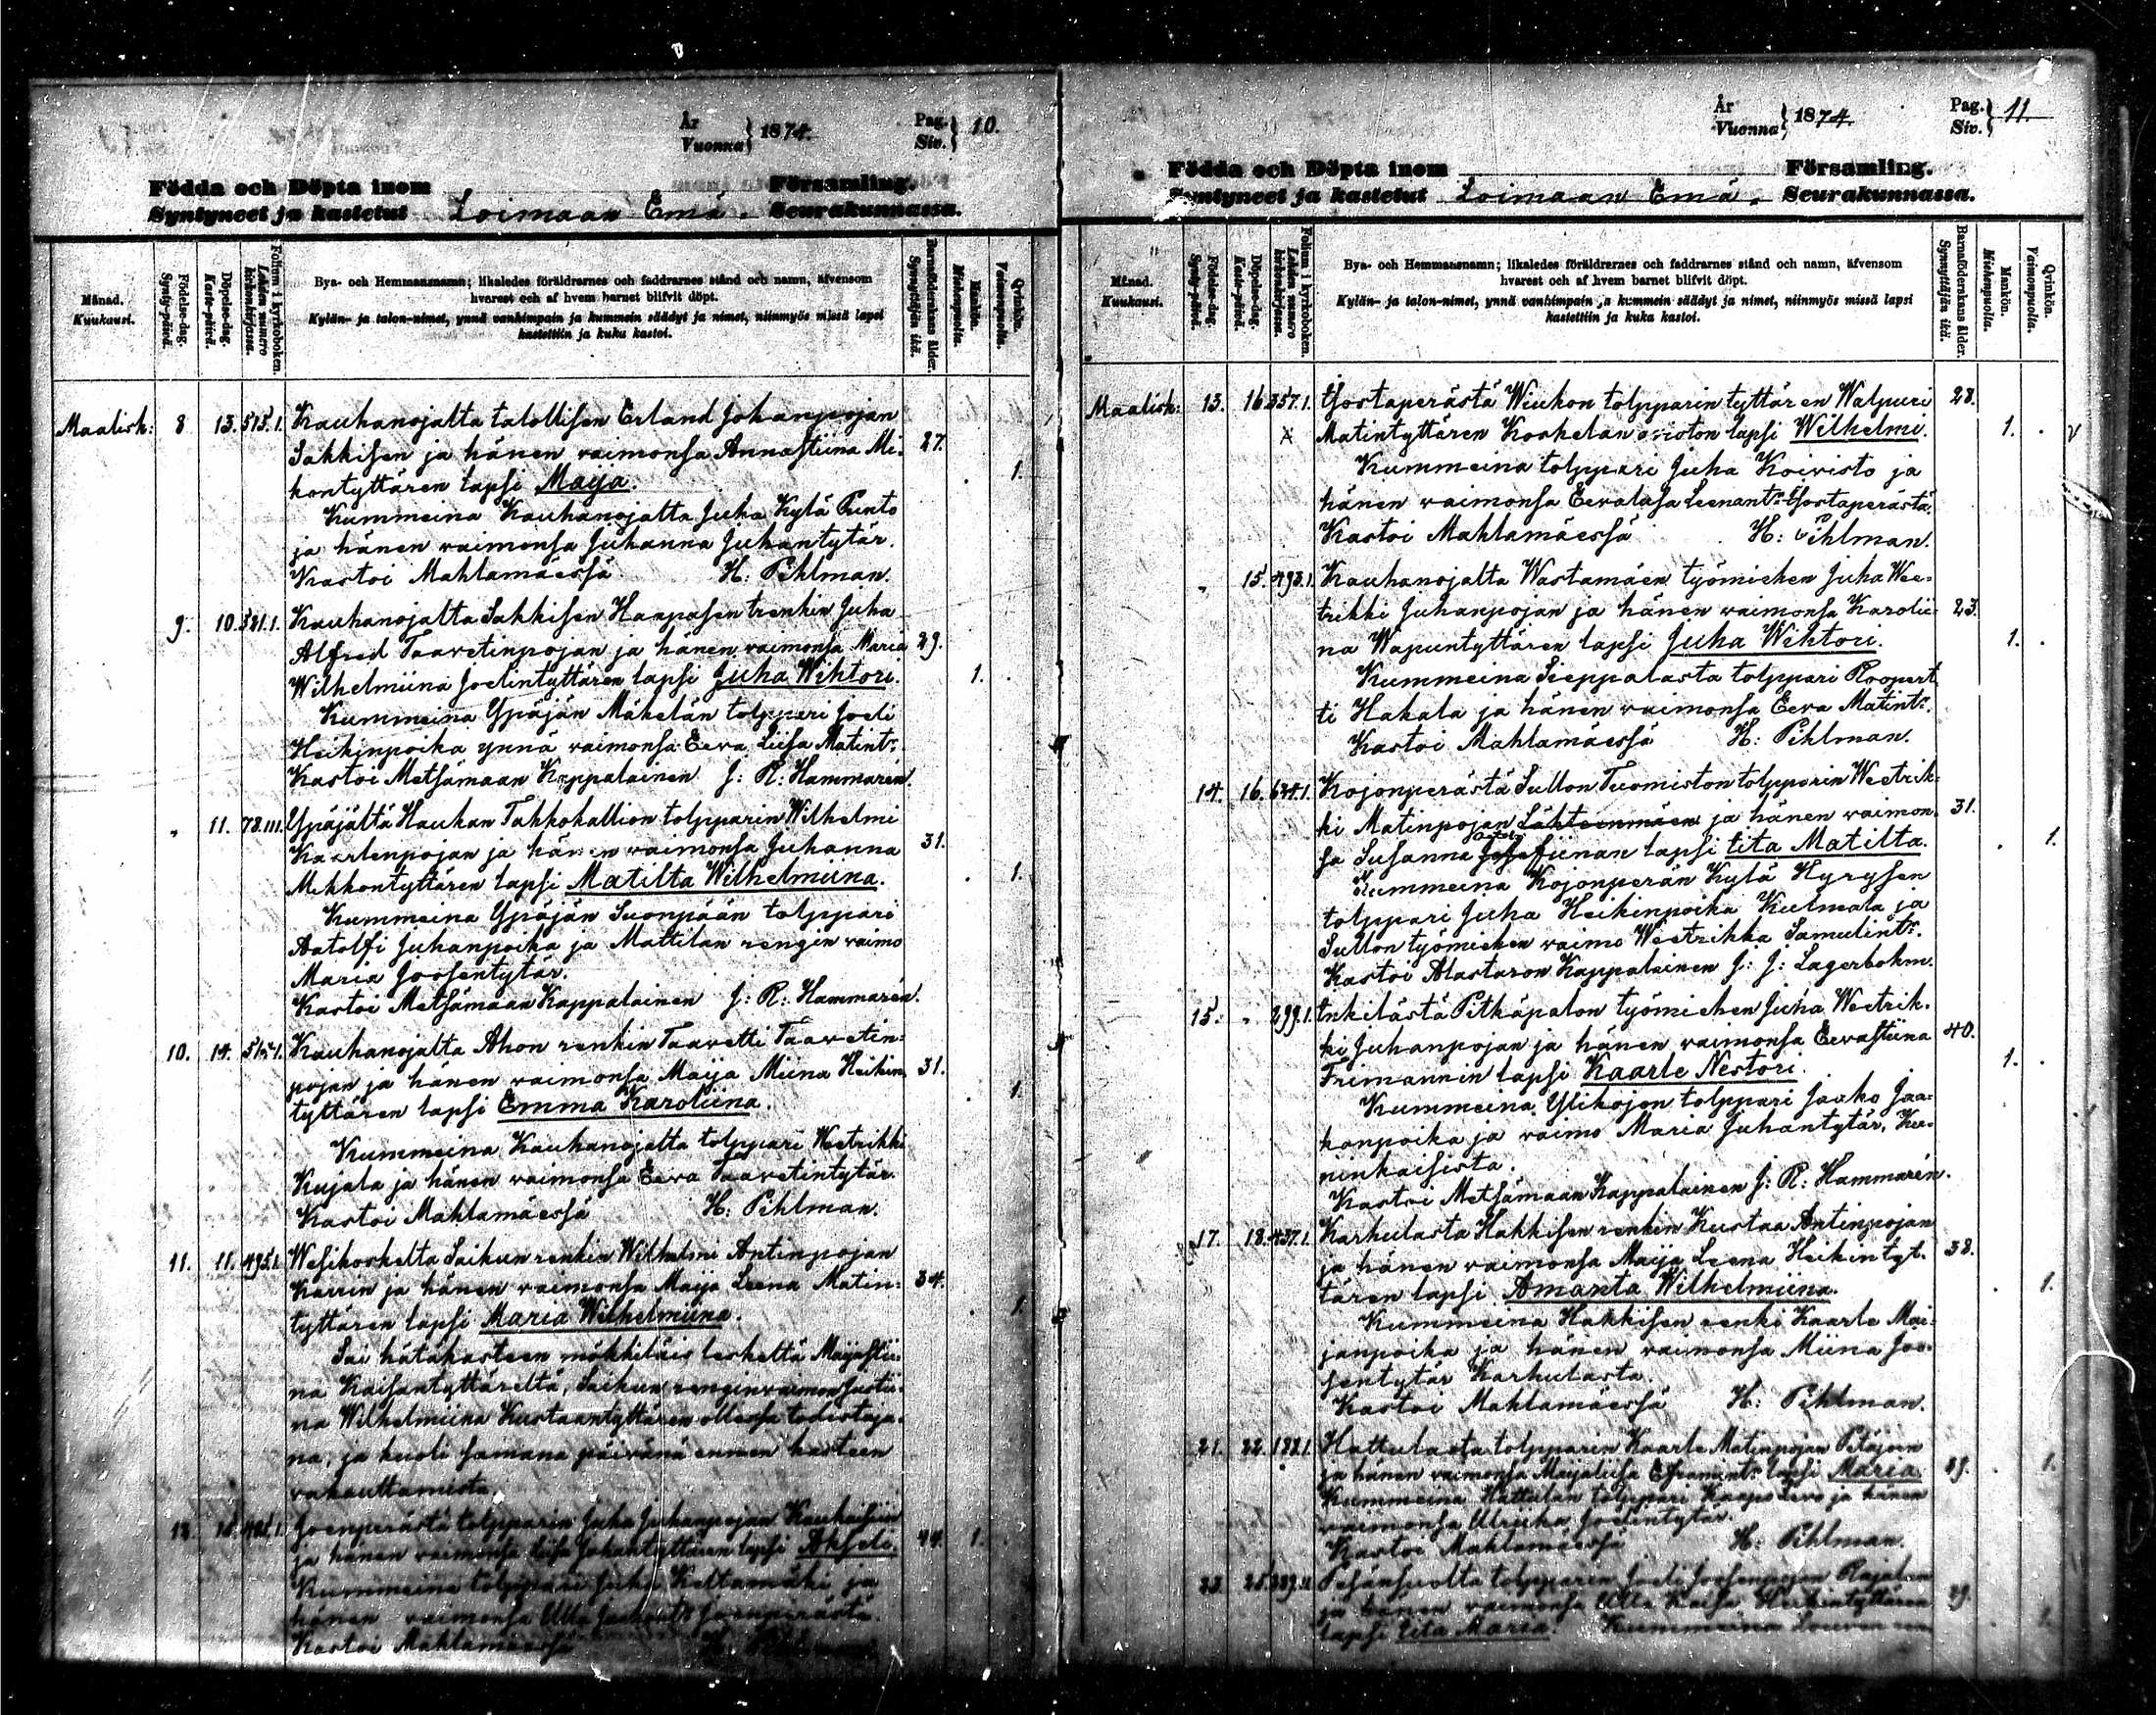 År
Vuonna } 1874.
Pag.
Siv. } 10.
Födda och Döpta inom Församling.
Syntyneet ja kastetut Loimaan Emä. Seurakunnassa.
Månad.
Kuukausi.
Födelse-dag.
Synty-päivä.
Döpelse-dag.
Kaste-päivä.
Folium i kyrkoboken.
Lehden numero kirkonkirjassa.
Bya- och Hemmansnamn; likaledes föräldrarnes och faddrarnes stånd och namn, äfvensom
hvarest och af hvem barnet blifvit döpt.
Kylän- ja talon-nimet, ynnä vanhimpain ja kummein säädyt ja nimet, niinmyös missä lapsi
kastettiin ja kuka kastoi.
Barnaföderskans ålder.
Synnyttäjän ikä.
Mankön.
Miehenpuolia.
Qvinkön.
Vaimonpuolia.
Maalisk: 8 13. 515.1. Kauhanojalta talollisen Erland Johanpojan
Sakkisen ja hänen vaimonsa Annastiina Mi- 27.
kontyttären lapsi Maija. 1.
Kummeina Kauhanojalta Juha Kylä Punto
ja hänen vaimonsa Juhanna Juhantytär.
Kastoi Mahlamäessä H: Pihlman.
9. 10. 521.1. Kauhanojalta Sakkisen Haapasen trenkin Juha
Alfred Taavetinpojan ja hänen vaimonsa Maria 29.
Wilhelmiina Joelintyttären lapsi Juha Wihtori. 1.
Kummeina Ypäjän Mäkelän tolppari Joeli
Heikinpoika ynnä vaimonsa Eeva Liisa Matint:r
Kastoi Metsämaan Kappalainen J: R: Hammarén.
" 11. 78.III. Ypäjältä Haukan Tahkokallion tolpparin Wilhelmi
Kaarlenpojan ja hänen vaimonsa Juhanna 31.
Mikkontyttären lapsi Matilta Wilhelmiina. 1.
Kummeina Ypäjän Suonpään tolppari
Aatolfi Juhanpoika ja Mattilan rengin vaimo
Maria Joosentytär.
Kastoi Metsämaan Kappalainen J: R: Hammarén.
10. 14. 515.1. Kauhanojalta Ahon renkin Taavetti Taavetin-
pojan ja hänen vaimonsa Maija Miina Heikin- 31.
tyttären lapsi Emma Karoliina. 1.
Kummeina Kauhanojalta tolppari Weetrikki
Kujala ja hänen vaimonsa Eeva Taavetintytär.
Kastoi Mahlamäessä H: Pihlman.
11. 11. 495.1. Wesikoskelta Saikun renkin Wilhelmi Antinpojan
Karrin ja hänen vaimonsa Maija Leena Matin- 34.
tyttären lapsi Maria Wilhelmiina. 1.
Sai hätäkasteen mökkiläis leskeltä Maijastii-
na Kaisantyttäreltä, Saikun renginvaimon Justii-
na Wilhelmiina Kustaantyttären ollessa todistaja-
na, ja kuoli samana päivänä ennen kasteen
vahvuttamista.
Joenperästä tolpparin Juha Juhanpojan
ja hänen vaimonsa Liisa Johantyttären lapsi Akseli. 44. 1.
Kummeina tolppari Juha Keltamäki ja
hänen vaimonsa Ulla Joenperästä.
Kastoi Mahlamäessä
År
Vuonna } 1874.
Pag.
Siv. } 11.
Födda och Döpta inom Församling.
Syntyneet ja kastetut Loimaan Emä. Seurakunnassa.
Månad.
Kuukausi.
Födelse-dag.
Synty-päivä.
Döpelse-dag.
Kaste-päivä.
Folium i kyrkoboken.
Lehden numero kirkonkirjassa.
Bya- och Hemmansnamn; likaledes föräldrarnes och faddrarnes stånd och namn, äfvensom
hvarest och af hvem barnet blifvit döpt.
Kylän- ja talon-nimet, ynnä vanhimpain ja kummein säädyt ja nimet, niinmyös missä lapsi
kastettiin ja kuka kastoi.
Barnaföderskans ålder.
Synnyttäjän ikä.
Mankön.
Miehenpuolia.
Qvinkön.
Vaimonpuolia.
Maalisk: 13. 16. 357.1. Wiukon tolpparin tyttären Walpuri 28.
Matintyttären Koskelan avioton lapsi Wilhelmi. 1.
Kummeina tolppari Juha Koivisto ja
hänen vaimonsa Eevalusa Leenant:r
Kastoi Mahlamäessä H: Pihlman.
" 15. 493.1. Kauhanojalta Wastamäen työmiehen Juha Wee-
trikki Juhanpojan ja hänen vaimonsa Karolii- 23.
na Wapuntyttären lapsi Juha Wihtori. 1.
Kummeina Sieppalasta tolppari Roopert-
ti Hakala ja hänen vaimonsa Eeva Matint:r.
Kastoi Mahlamäessä H: Pihlman.
14. 16. 634.1. Kojonperästä Sullon Tuomiston tolpparin Weetrik-
ki Matinpojan Lähteenmäen ja hänen vaimon- 31.
sa Susanna Josefiinan lapsi Iita Matilta. 1.
Kummeina Kojonperän Kylä Hyrysen
tolppari Juha Heikinpoika Kulmala ja
Sullon työmiehen vaimo Weetrikka Samulint:r.
Kastoi Alastaron Kappalainen J: J: Lagerbohm.
15. " 299.1. Inkilästä Pitkäpalon työmiehen Juha Weetrik-
ki Juhanpojan ja hänen vaimonsa Eevastiina 40.
Friimannin lapsi Kaarle Nestori. 1.
Kummeina Ylikojon tolppari Jaako Jaa-
konpoika ja vaimo Maria Juhantytär, Ku-
ninkaisista.
Kastoi Metsämaan Kappalainen J: R: Hammarén.
17. 18. 437.1. Karhulasta Hakkisen renkin Kustaa Antinpojan
ja hänen vaimonsa Maija Leena Heikintyt- 38.
tären lapsi Amanta Wilhelmiina. 1.
Kummeina Hakkisen renki Kaarle Mai-
janpoika ja hänen vaimonsa Miina Joo-
sentytär Karhulasta.
Kastoi Mahlamäessä H: Pihlman.
21. 22. 182.1. Hattulasta tolpparin Kaarle Matinpojan
ja hänen vaimonsa Maijaliisa lapsi Maria. 1.
Kummeina Hattulan tolppari Kaapo ja hänen
vaimonsa Ulrika Joelintytär.
Kastoi Mahlamäessä H: Pihlman.
tolpparin Joeli Joosenpojan Rajalan
ja hänen vaimonsa Ulla Kaisa Heikintyttären
lapsi Iita Maria. Kummeina